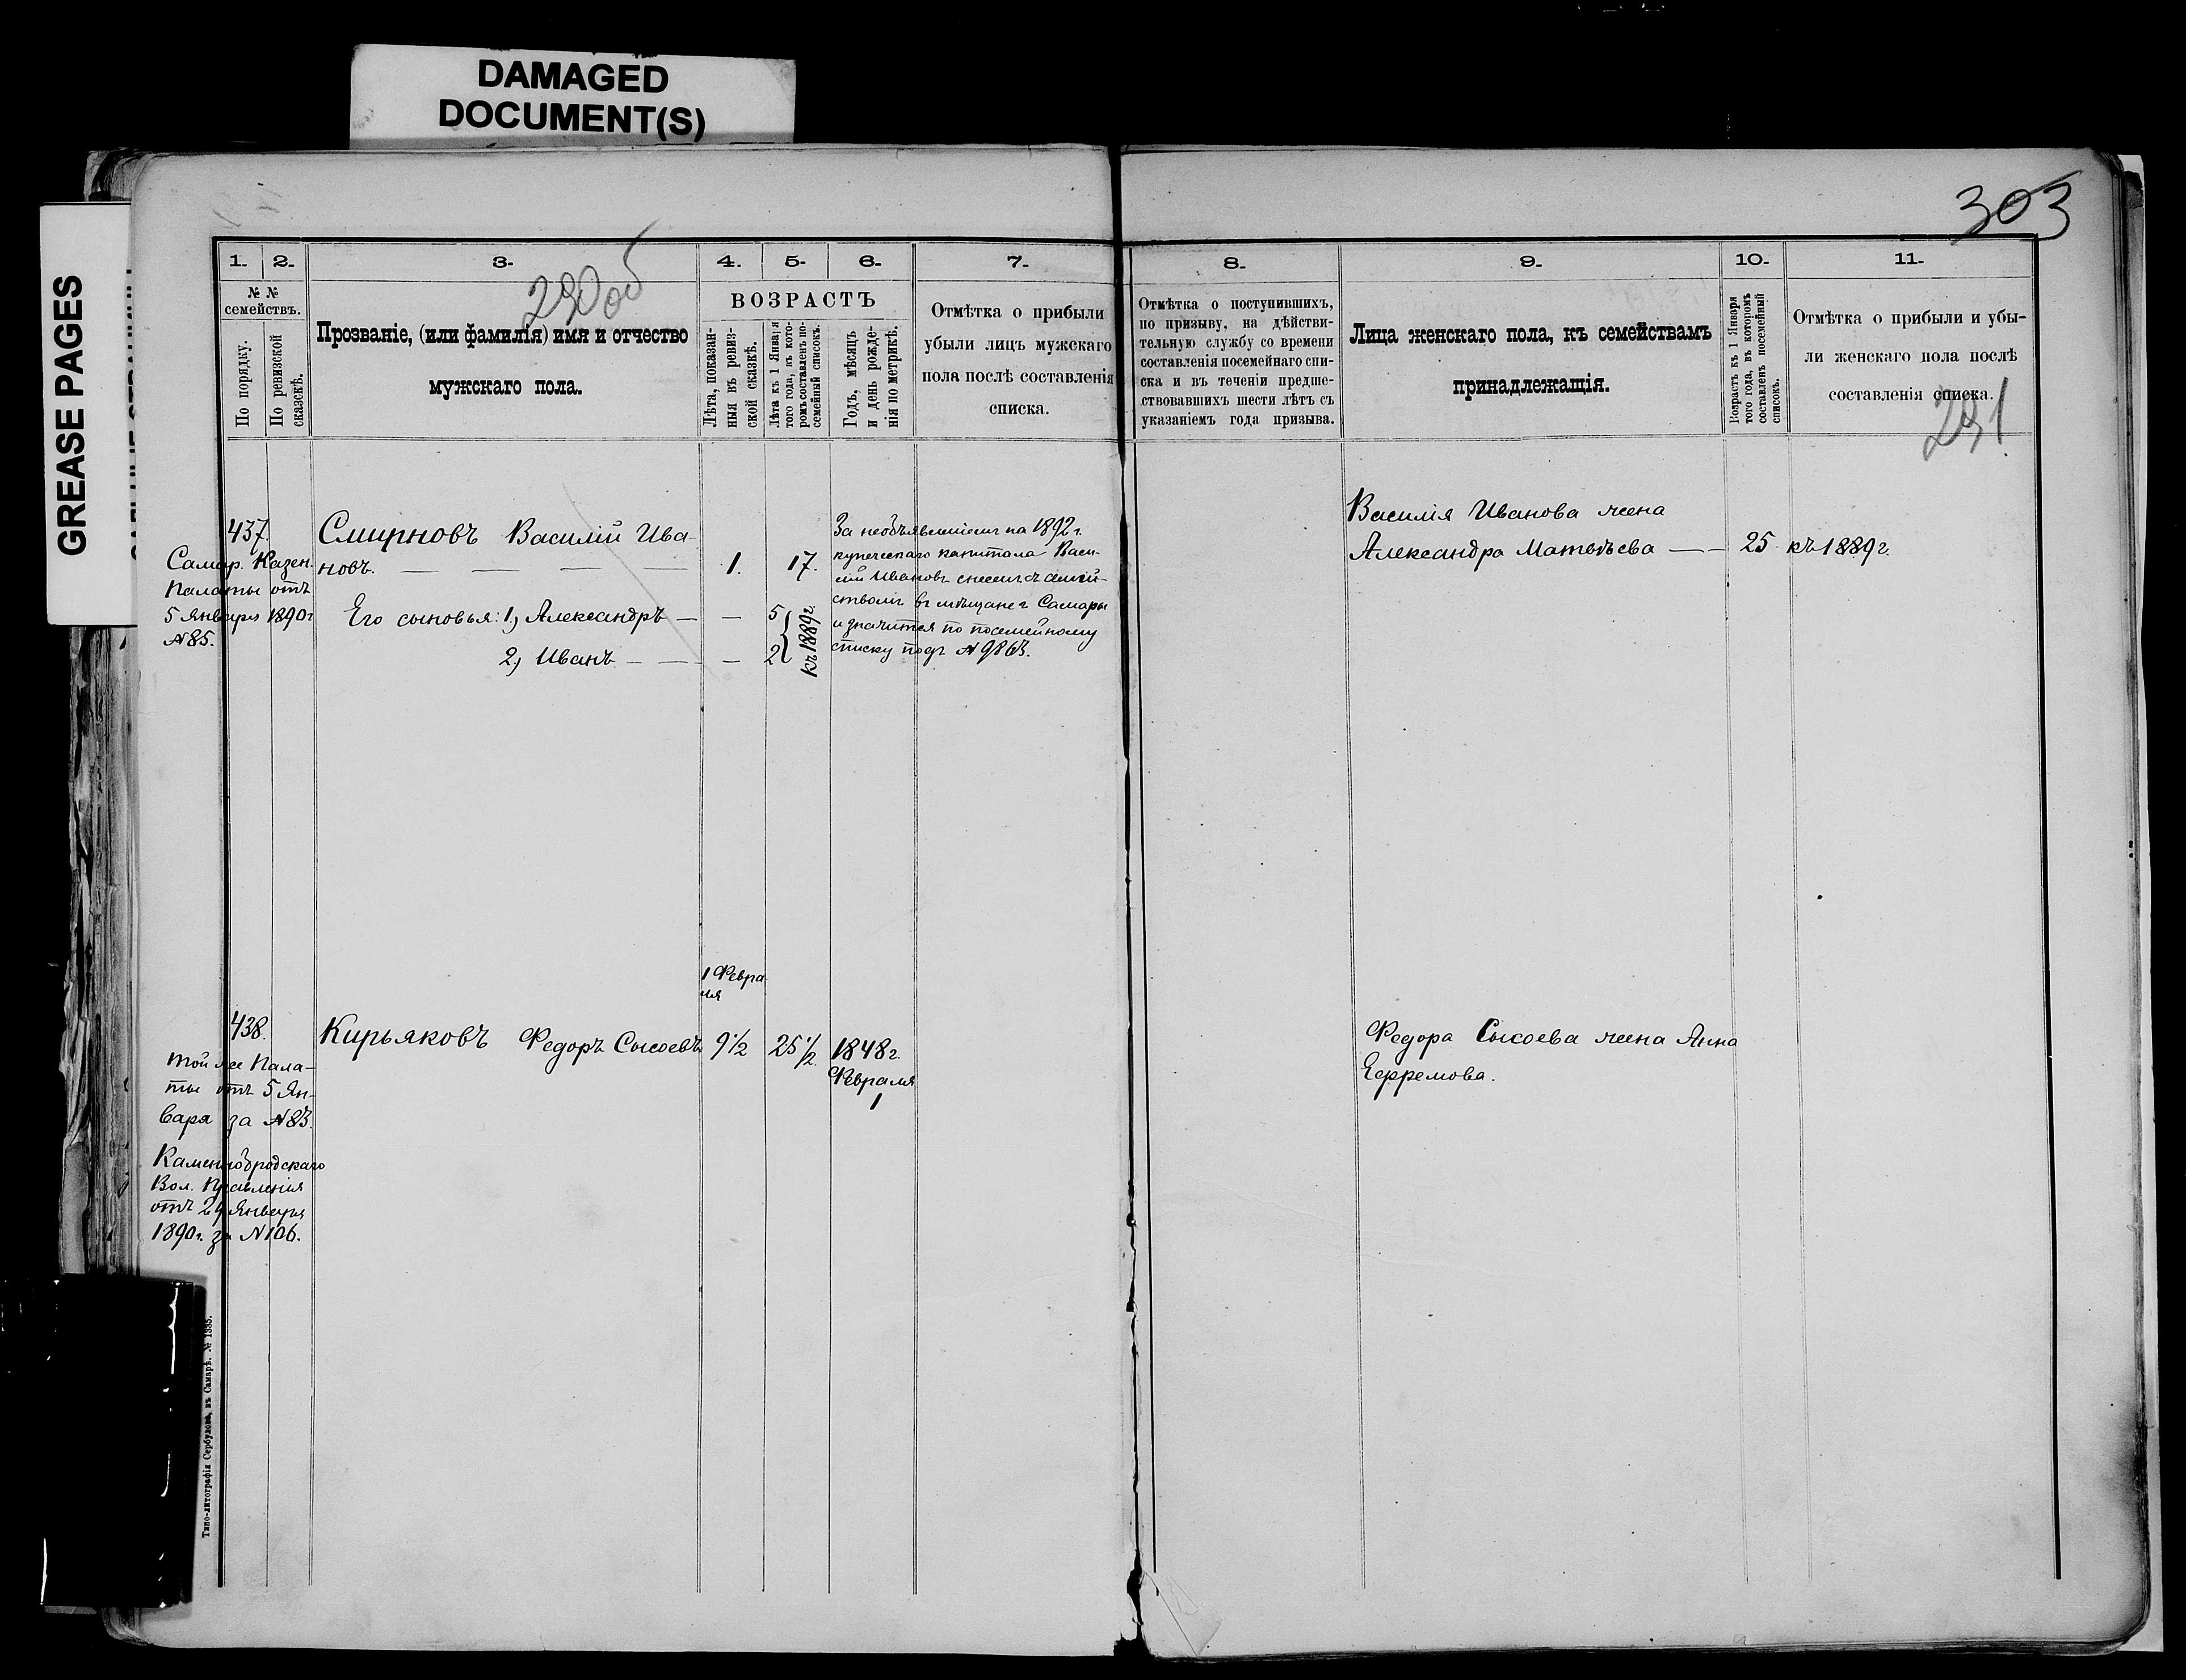 DAMAGED
DOCUMENT(S)
GREASE PAGES
303
290 об
291
1.
2.
3.
4.
5.
6.
7.
8.
9.
10.
11.
№ №
семействъ.
По порядку.
По ревизской
сказкѣ.
Прозваніе, (или фамилія) имя и отчество
мужскаго пола.
ВОЗРАСТЪ
Лѣта, показан-
ныя въ ревиз-
ской сказкѣ.
Лѣта къ 1 Января
того года, въ кото-
ромъ составленъ по-
семейный списокъ.
Годъ, мѣсяцъ
и день рожде-
нія по метрикѣ.
Отмѣтка о прибыли
убыли лицъ мужскаго
пола послѣ составленія
списка.
Отмѣтка о поступившихъ,
по призыву, на дѣйстви-
тельную службу со времени
составленія посемейнаго спи-
ска и въ теченіи предше-
ствовавшихъ шести лѣтъ съ
указаніемъ года призыва.
Лица женскаго пола, къ семействамъ
принадлежащія.
Возрастъ къ 1 Января
того года, въ которомъ
составленъ посемейный
списокъ.
Отмѣтка о прибыли и убы-
ли женскаго пола послѣ
составленія списка.
437.
Самар. Казен.
Палаты отъ
5 Января 1890г
№85.
Смирновъ Василій Ива-
новъ. 1. 17.
Его сыновья: 1, Александръ — — 5
2, Иванъ — — — 2
къ 1889г.
За необъявленіемъ на 1892 г.
купеческаго капитала Васи-
лій Ивановъ съ семей-
ствомъ въ мѣщане г Самары
и значится по посемейному
списку подъ № 9863.
Василія Иванова жена
Александра Матвѣева — — 25 къ 1889г.
438.
Той же Пала-
ты отъ 5 Ян-
варя за №83.
Каменнобродскаго
Вол. Правленія
отъ 29 Января
1890г. за №106.
Кирьяковъ Федоръ Сысоевъ
1 Февра
ля
9 1/2 25 1/2.
1848г.
Февраля
1
Федора Сысоева жена Анна
Ефремова.
Типо-литографія Сербулова, въ Самарѣ. № 1335.